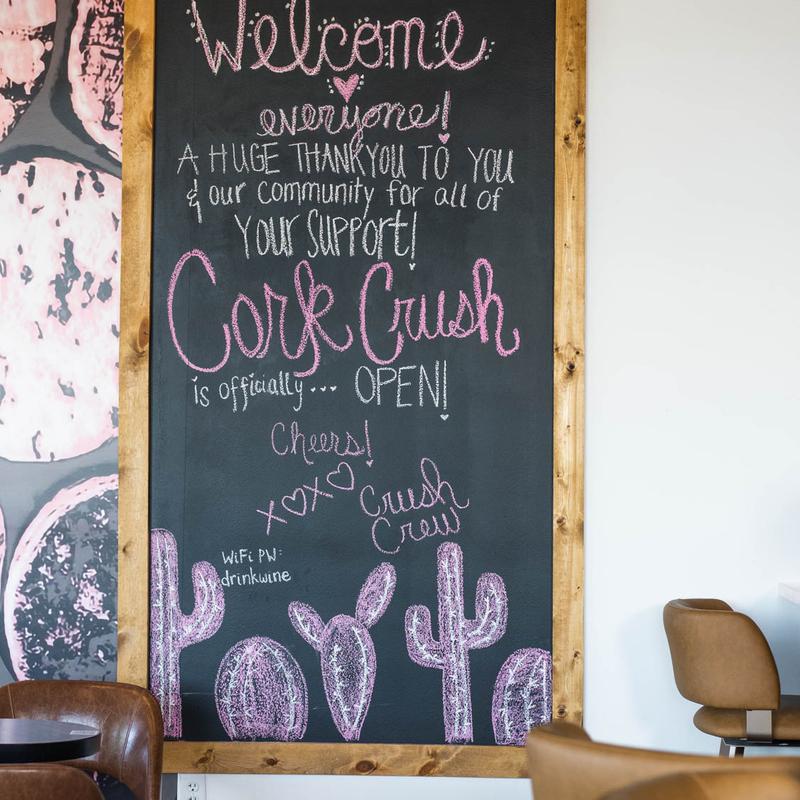 Welcome
everyone!
A HUGE THANKYOU TO YOU
& our community for all of
YOUR SUPPORT!
Cork Crush
is officially... OPEN!
Cheers!
XOXO
Crush
Crew
WiFi PW:
drinkwine